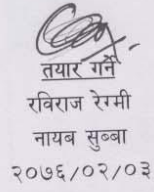 तयार गर्ने
रविराज रेग्मी
नायब सुब्बा
२०७६/०२/०३